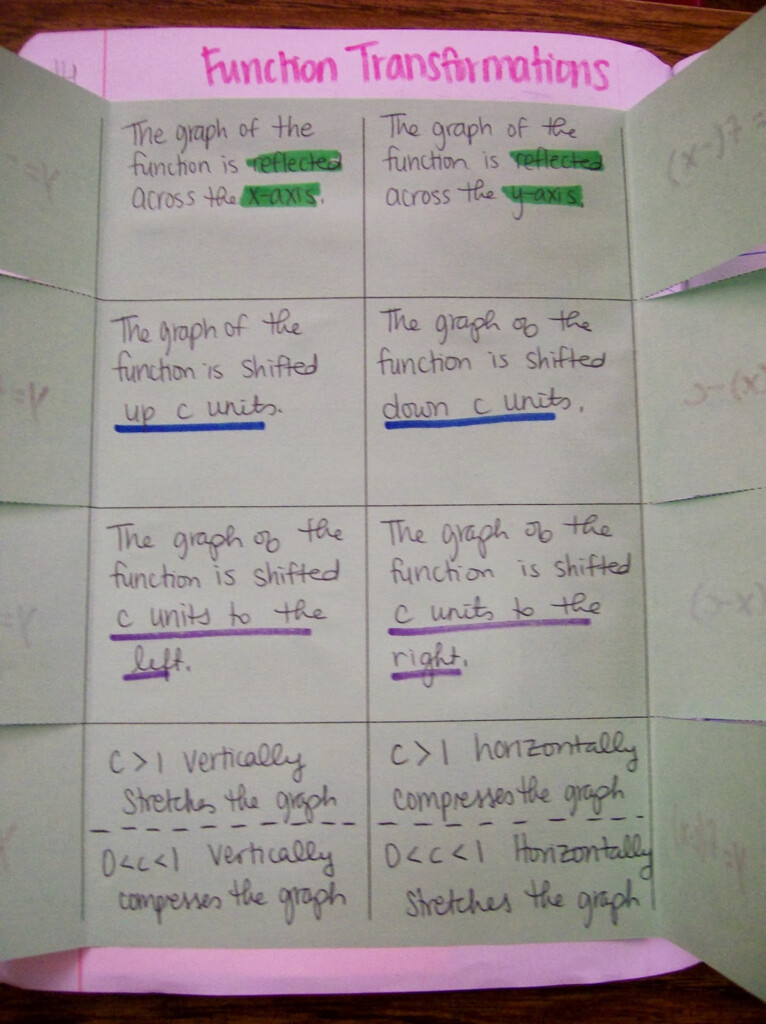 Function Transformations
The graph of the
function is reflected
across the x-axis.
The graph of the
function is reflected
across the y-axis.
The graph of the
function is shifted
up c units.
The graph of the
function is shifted
down c units.
The graph of the
function is shifted
c units to the
left.
The graph of the
function is shifted
c units to the
right.
c>1 vertically
stretches the graph
0<c<1 vertically
compresses the graph
c>1 horizontally
compresses the graph
0<c<1 Horizontally
stretches the graph